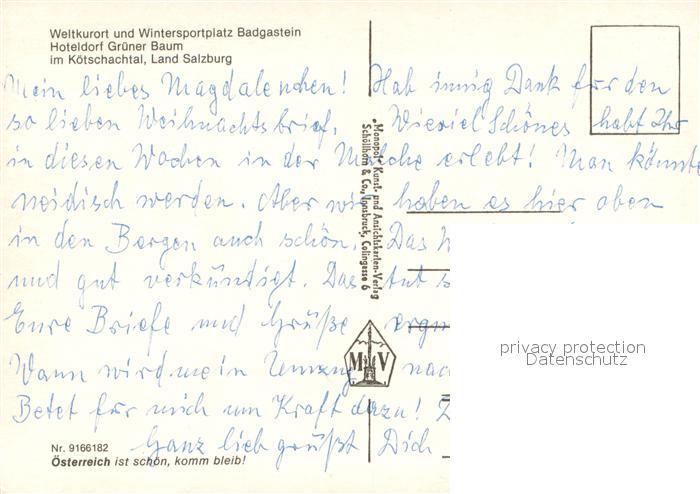 Weltkurort und Wintersportplatz Badgastein
Hoteldorf Grüner Baum
im Kötschachtal, Land Salzburg
Mein liebes Magdalenchen! Hab innig Dank für den
so lieben Weihnachtsbrief. Wieviel Schönes habt Ihr
in diesen Wochen in der erlebt! Man könnte
neidisch werden. Aber wir haben es hier oben
in den Bergen auch schön. Das
und gut verkündigt. Das tut
Eure Briefe und Grüße
Wann wird mein Umzug
Betet für mich um Kraft dazu!
Ganz lieb grüßt Dich
"Monopol" Kunst- und Ansichtskarten-Verlag
Schöllhorn & Co., Innsbruck, Colingasse 6
M V
privacy protection
Datenschutz
Nr. 9166182
Österreich ist schön, komm bleib!